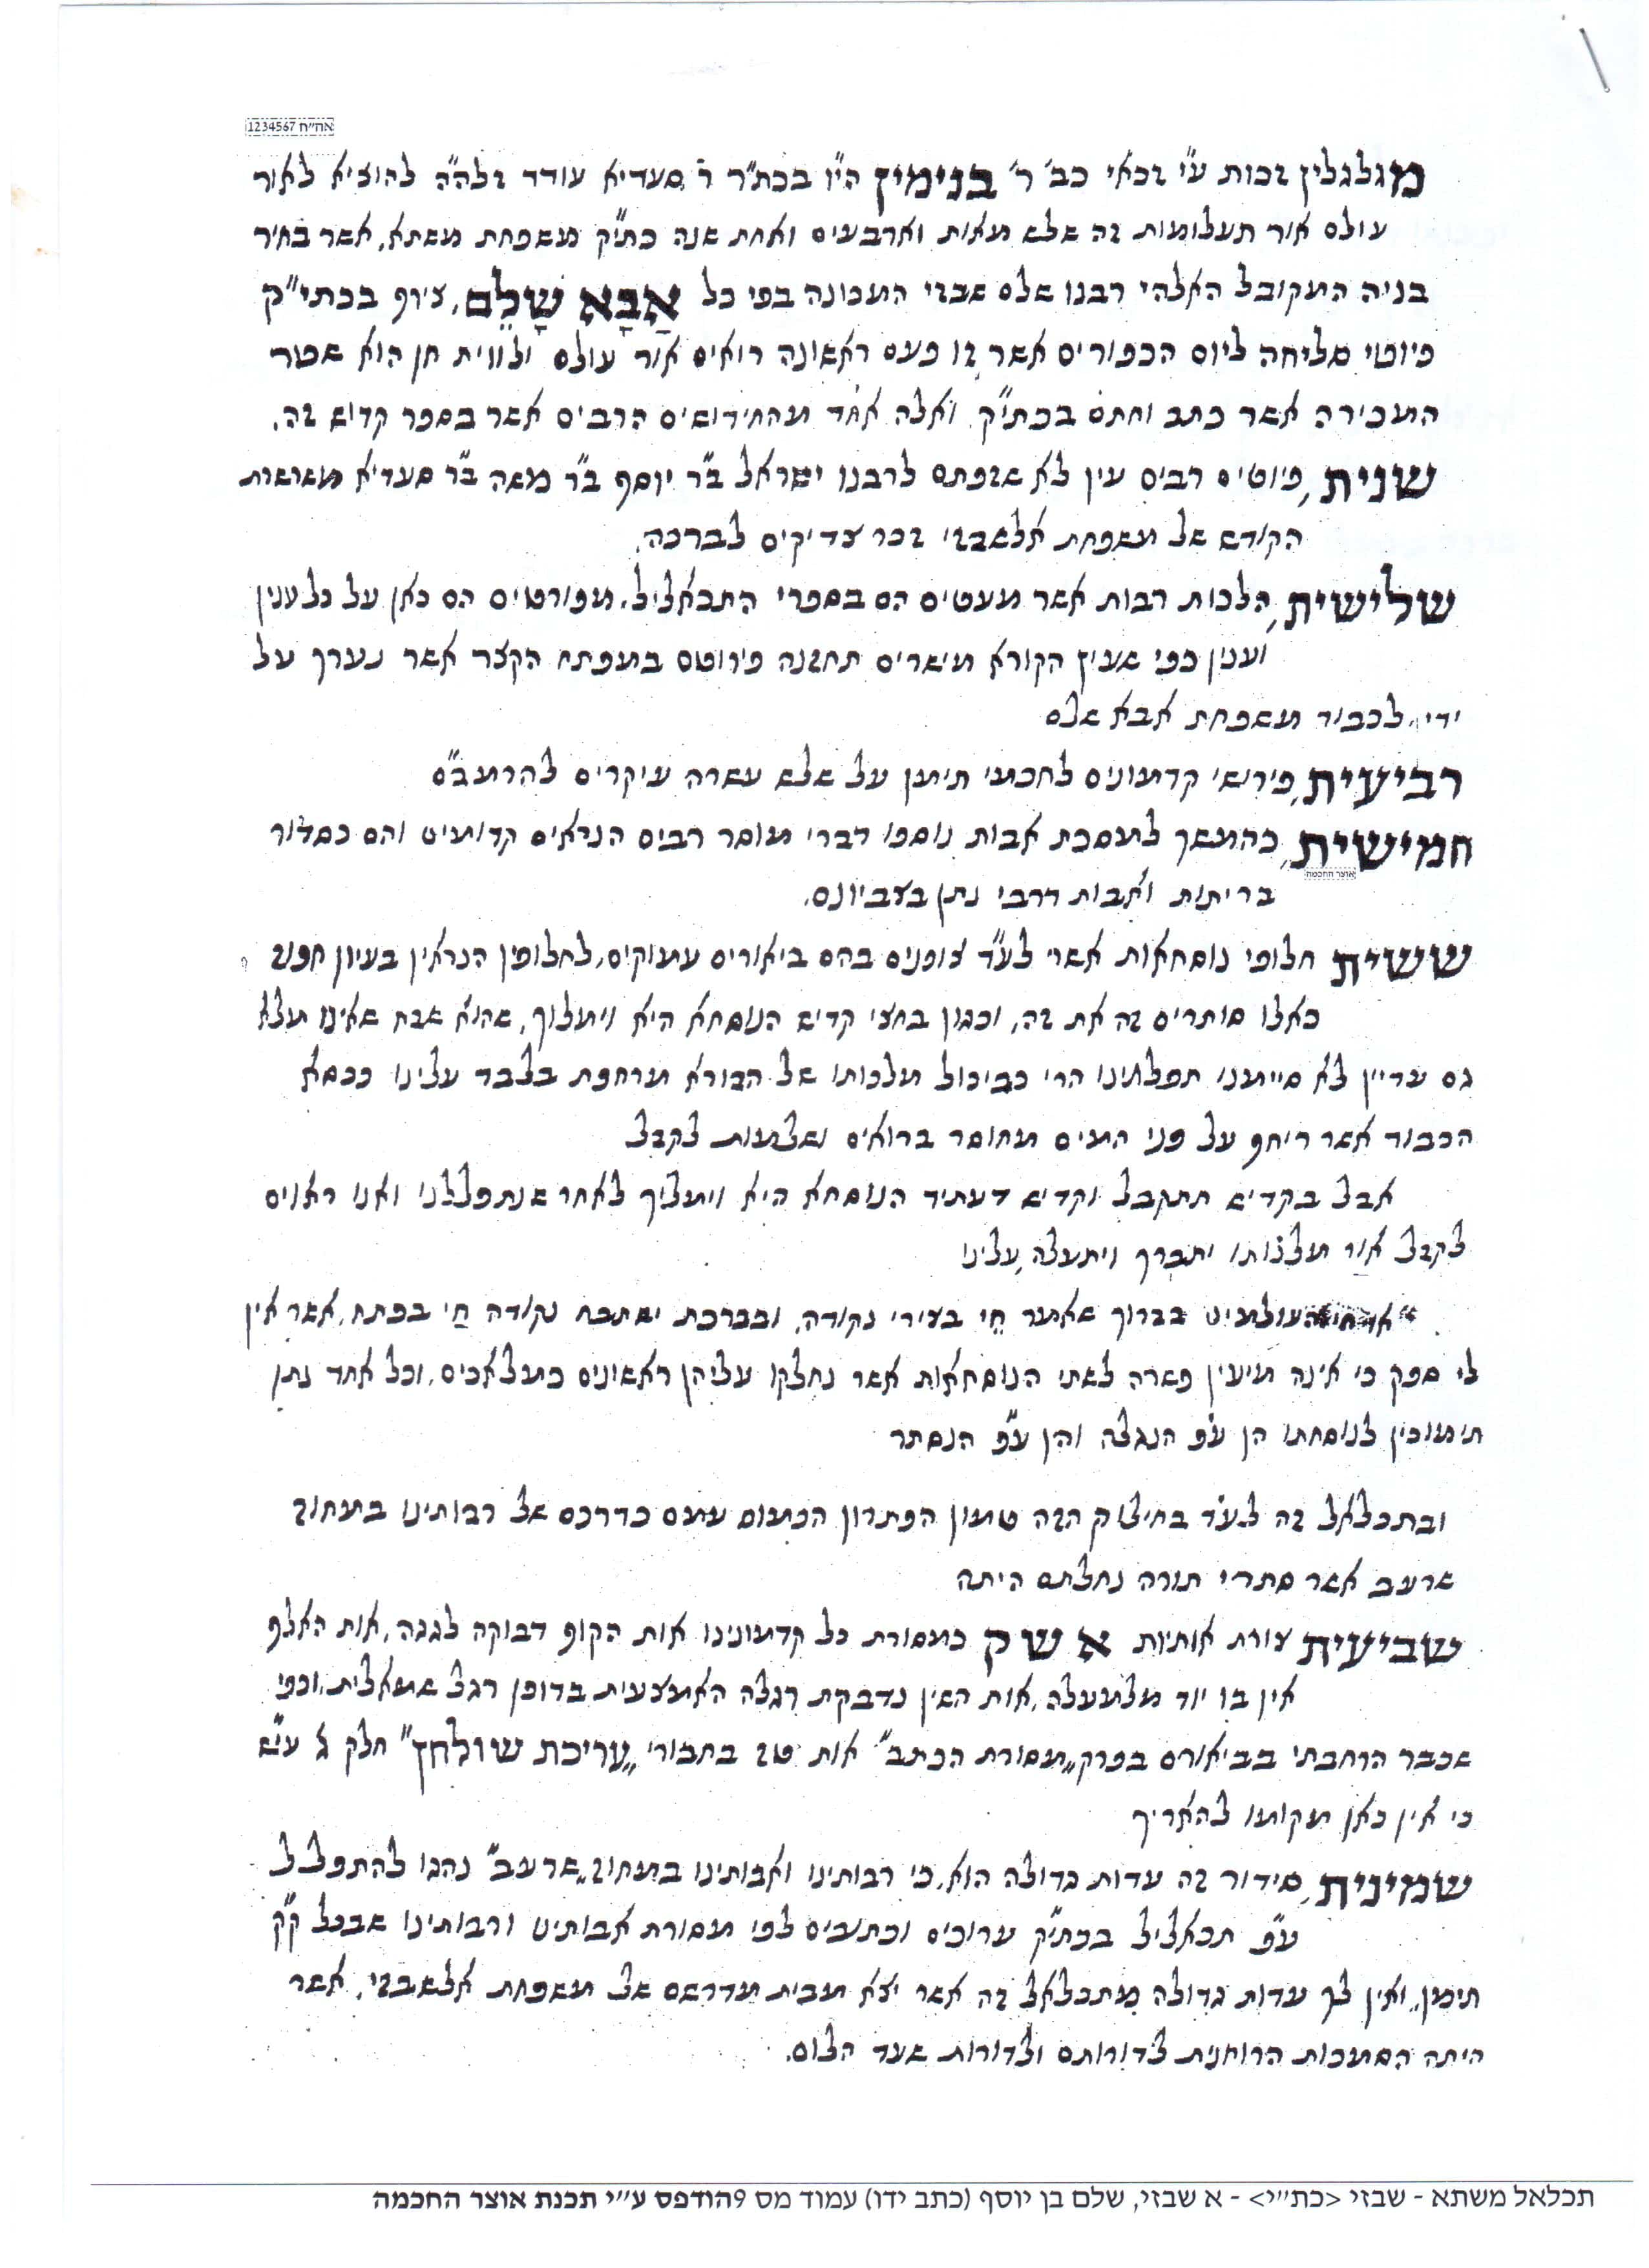 אה״ח 1234567
מגלגלין זכות ע״י זכאי כב׳ ר׳ בנימין הי״ו בכת״ר ר׳ סעדיא עודד זלה״ה להוציא לאור
עולם אור תעלומות זה שלש מאות וארבעים ואחת שנה כת״ק משפחת משתא, אשר בחיר
בניה המקובל האלהי רבנו שלם שבזי המכונה בפי כל אַבָּא שָׁלֵם, צירף בכתי״ק
פיוטי סליחה ליום הכפורים אשר זו פעם ראשונה רואים אור עולם ולווית חן הוא שטר
המכירה אשר כתב וחתם בכת״ק ואלה אחד מהחידושים הרבים אשר בספר קדוש זה.
שנית, פיוטים רבים עין לא שזפתם לרבנו ישראל ב״ר יוסף ב״ר משה ב״ר סעדיא משרשרת
הקודש של משפחת אלשבזי זכר צדיקים לברכה.
שלישית, הלכות רבות אשר מעטים הם בספרי התכאליל, מפורטים הם כאן על כל ענין
וענין כפי שעין הקורא מישרים תחזנה פירוטם במפתח הקצר אשר נערך על
ידי, לכבוד משפחת אבא שלם
רביעית, פירושי קדמונים לחכמי תימן על שלש עשרה עיקרים להרמב״ם
חמישית, כהמשך למסכת אבות נוספו דברי מוסר רבים הנראים קדומים והם כסדור
אוצר החכמה
בריתות ואבות דרבי נתן בצביונם.
ששית חלופי נוסחאות אשר לע״ד צופנים בהם ביאורים עמוקים, לחלופין הנראין בעיון חפוז
כאלו סותרים זה את זה, וכגון בחצי קדיש הנוסחא היא וימלוך, שהוא שבח שאינו מלא
גם עדיין לא סיימנו תפלתינו הרי כביכול מלכותו של הבורא מרחפת בלבד עלינו ככסא
הכבוד אשר ריחף על פני המים מחוסר ברואים ונשלמות לקבל
אבל בקדיש תתקבל וקדיש דעתיד הנוסחא היא וימליך לאחר שנתפללנו ואנו ראוים
לקבל אור מלכותו יתברך ויתעלה, עלינו
העולמים בברוך שאמר חֵי בצירי נקודה, ובברכת ישתבח נקודה חַי בפתח, אשר אין
לי ספק כי אינה מיעין פשרה לשתי הנוסחאות אשר נחלקו עליהן ראשונים כמלאכים, וכל אחד נתן
תימוכין לנוסחתו הן ע״פ הנגלה והן ע״פ הנסתר
ובתכלאל זה לע״ד בחילוק הזה טמון הפתרון הכמוס עמם כדרכם של רבותינו במחוז
שרעב אשר סתרי תורה נחלתם היתה
שביעית צורת אותיות א ש ק כמסורת כל קדמונינו אות הקוף דבוקה לגגה, אות האלף
אין בו יוד מלמעלה, אות השין נדבקת רגלה האמצעית בדופן רגל שמאלית, וכפי
שכבר הרחבתי בביאורם בפרק „מסורת הכתב״ אות טז בחבורי „עריכת שולחן״ חלק ג׳ עי״ש
כי אין כאן מקומו להאריך
שמינית, סידור זה עדות גדולה הוא, כי רבותינו ואבותינו במחוז „שרעב״ נהגו להתפלל
ע״פ תכאליל בכת״ק ערוכים וכתובים לפי מסורת אבותינו ורבותינו שבכל ק״ק
תימן, ואין לך עדות גדולה מתכלאל זה אשר יצא מבית מדרשם של משפחת אלשבזי, אשר
היתה הסמכות הרוחנית לדורותם ולדורות שעד הלום.
תכלאל משתא - שבזי <כת״י> - א שבזי, שלם בן יוסף (כתב ידו) עמוד מס 9הודפס ע״י תכנת אוצר החכמה